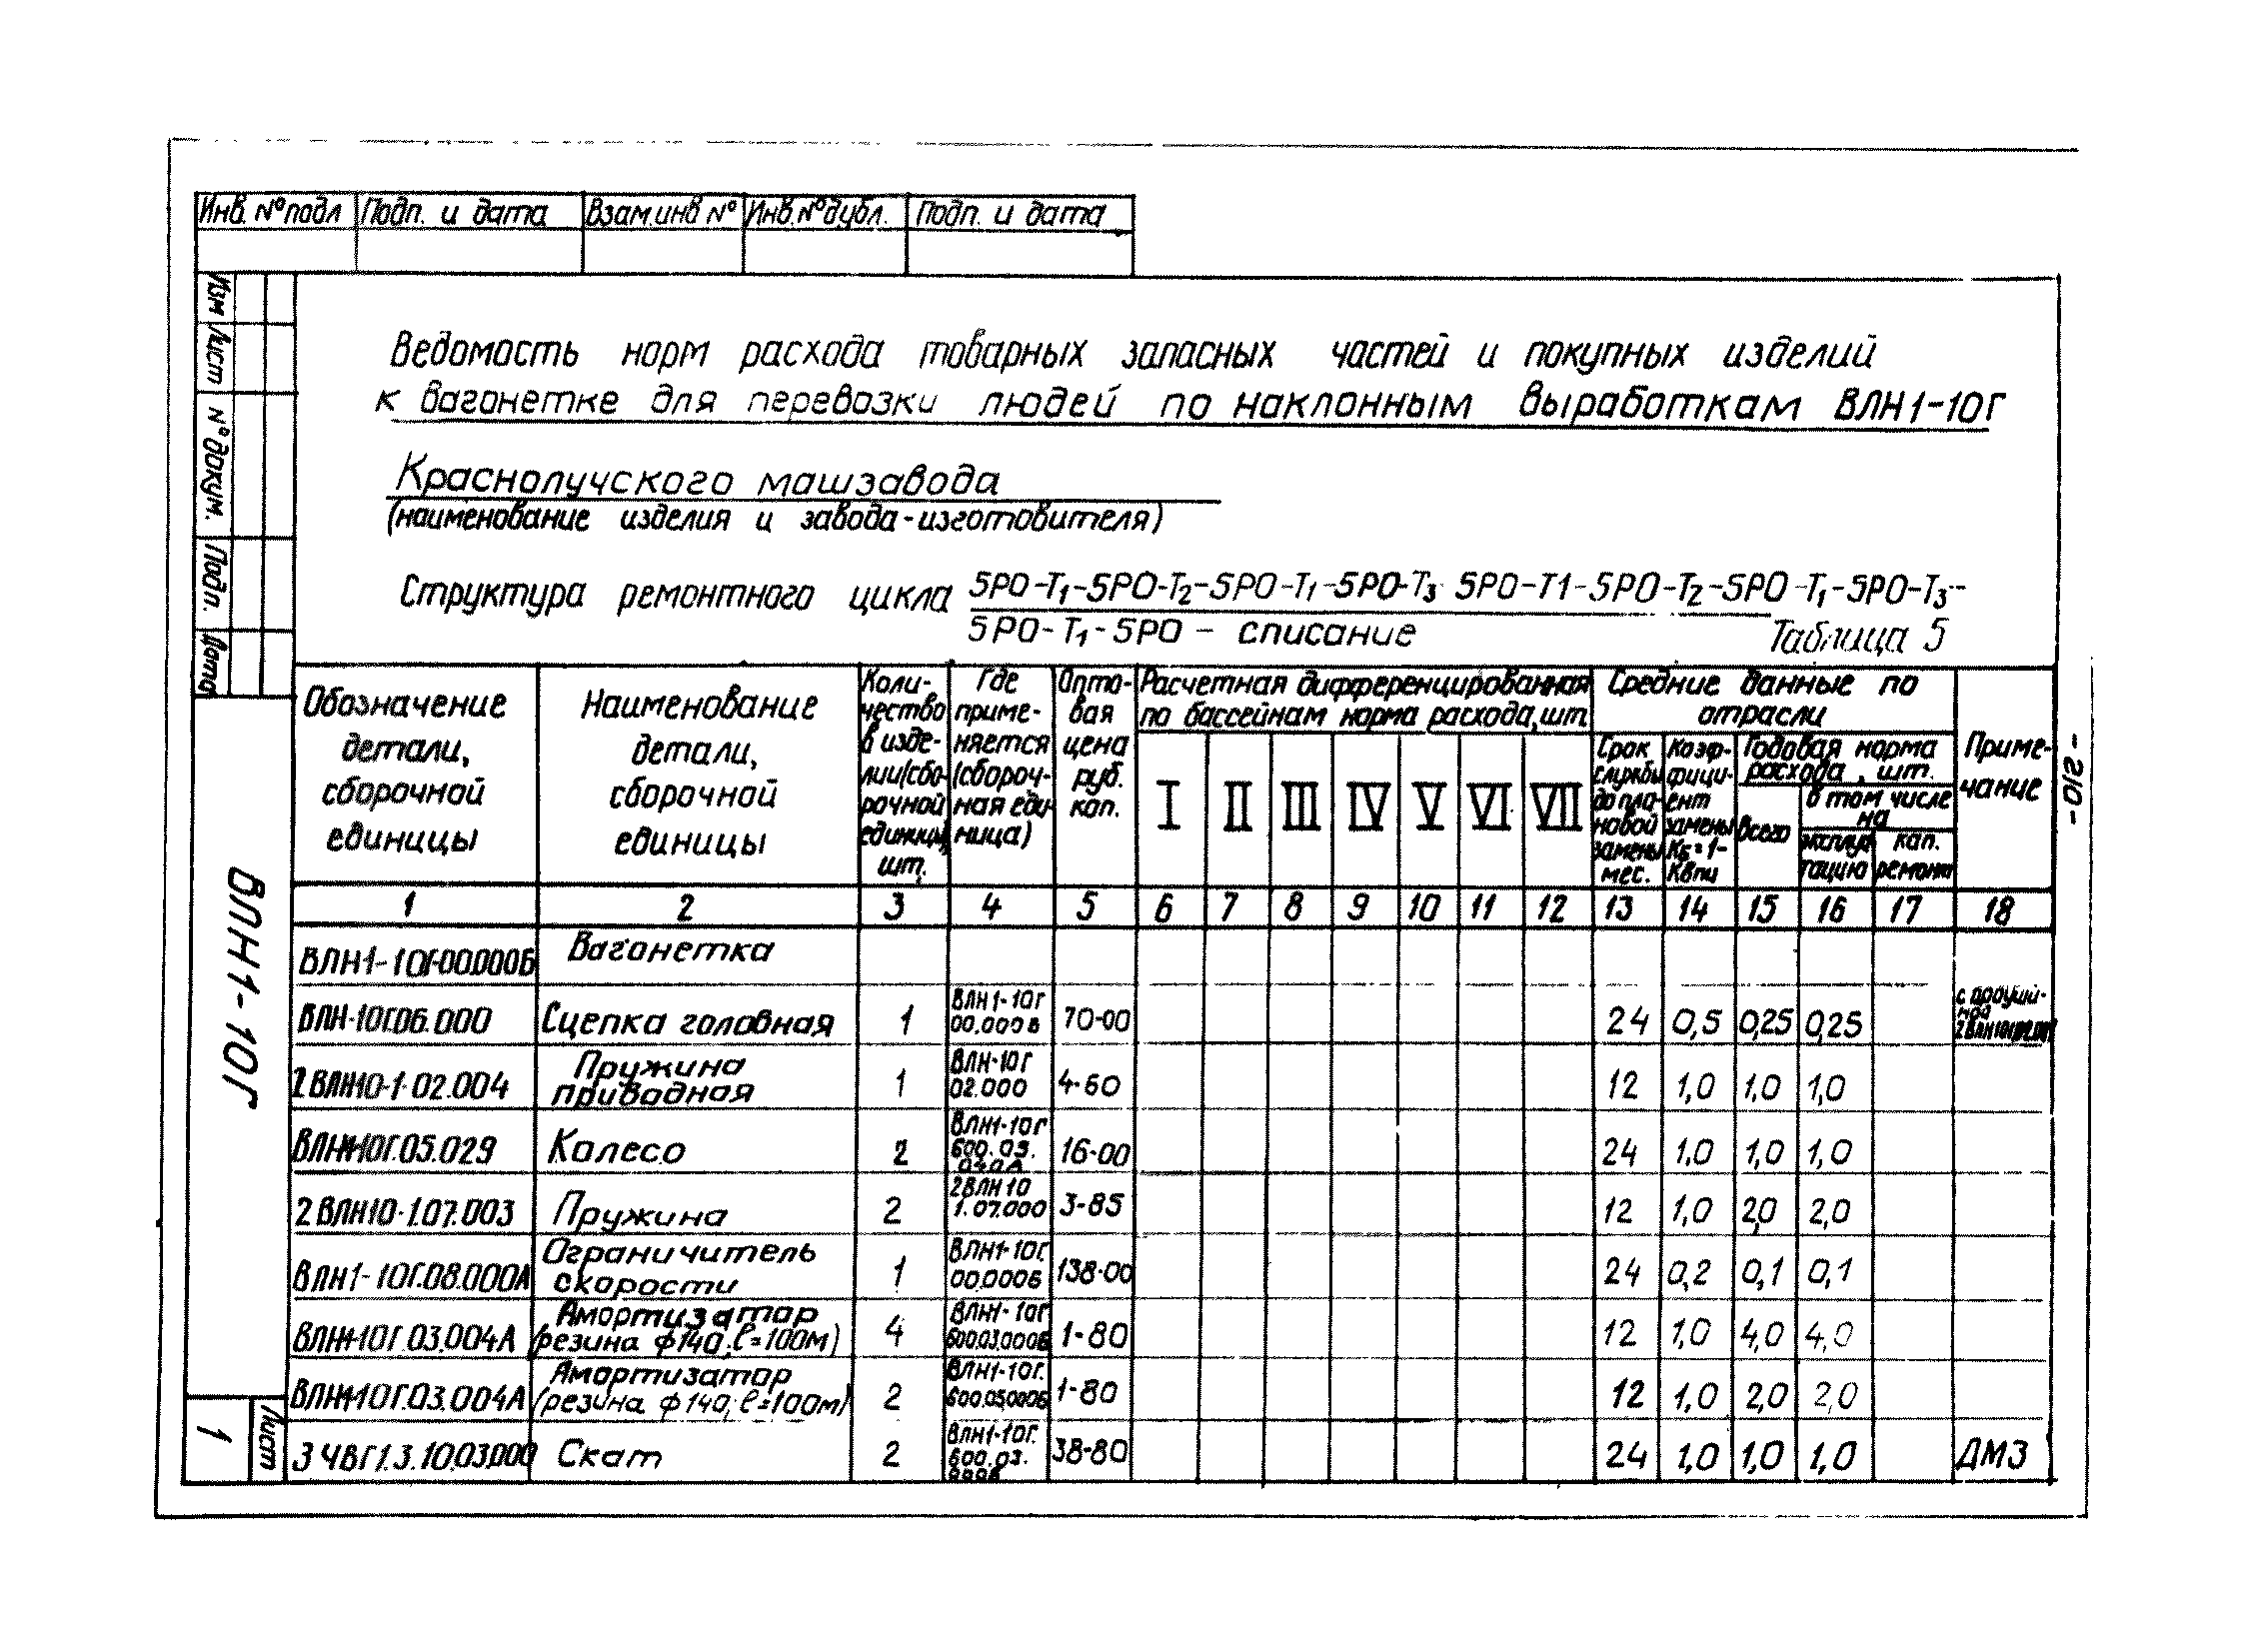 Инв. №подл Подп. и дата Взам.инв № Инв.№дубл. Подп. и дата
Изм Лист № докум. Подп. Дата
Ведомость норм расхода товарных запасных частей и покупных изделий
к вагонетке для перевозки людей по наклонным выработкам ВЛН1-10Г
Краснолучского машзавода
(наименование изделия и завода-изготовителя)
Структура ремонтного цикла 5РО-Т1-5РО-Т2-5РО-Т1-5РО-Т3 5РО-Т1-5РО-Т2-5РО-Т1-5РО-Т3-
5РО-Т1-5РО - списание Таблица 5
Обозначение детали, сборочной единицы
Наименование детали, сборочной единицы
Количество в изделии (сборочной единице), шт.
Где применяется (сборочная единица)
Оптовая цена руб. коп.
Расчетная дифференцированная
по бассейнам норма расхода, шт.
I II III IV V VI VII
Средние данные по
отрасли
Срок службы до плановой замены мес.
Коэффициент замены Кб=1-Квпи
Годовая норма
расхода, шт.
всего
в том числе
на
эксплуатацию
кап. ремонт
Примечание
1 2 3 4 5 6 7 8 9 10 11 12 13 14 15 16 17 18
ВЛН1-10Г.00.000Б Вагонетка
ВЛН-10Г.06.000 Сцепка головная 1 ВЛН1-10Г 00.000Б 70-00 24 0,5 0,25 0,25
2ВЛН10-1.02.004 Пружина приводная 1 ВЛН-10Г 02.000 4-60 12 1,0 1,0 1,0
ВЛН1-10Г.05.029 Колесо 2 ВЛН1-10Г 600.03. 16-00 24 1,0 1,0 1,0
2ВЛН10-1.07.003 Пружина 2 2ВЛН10 1.07.000 3-85 12 1,0 2,0 2,0
ВЛН1-10Г.08.000А Ограничитель скорости 1 ВЛН1-10Г. 00.000Б 138-00 24 0,2 0,1 0,1
ВЛН1-10Г.03.004А Амортизатор (резина ф140, ℓ=100м) 4 ВЛН1-10Г 600.03.000Б 1-80 12 1,0 4,0 4,0
ВЛН1-10Г.03.004А Амортизатор (резина ф140, ℓ=100м) 2 ВЛН1-10Г. 600.05.000Б 1-80 12 1,0 2,0 2,0
3 ЧВГ1.3.10.03.000 Скат 2 ВЛН1-10Г. 600.03. 38-80 24 1,0 1,0 1,0 ДМЗ
ВЛН1-10Г
Лист
1
-210-